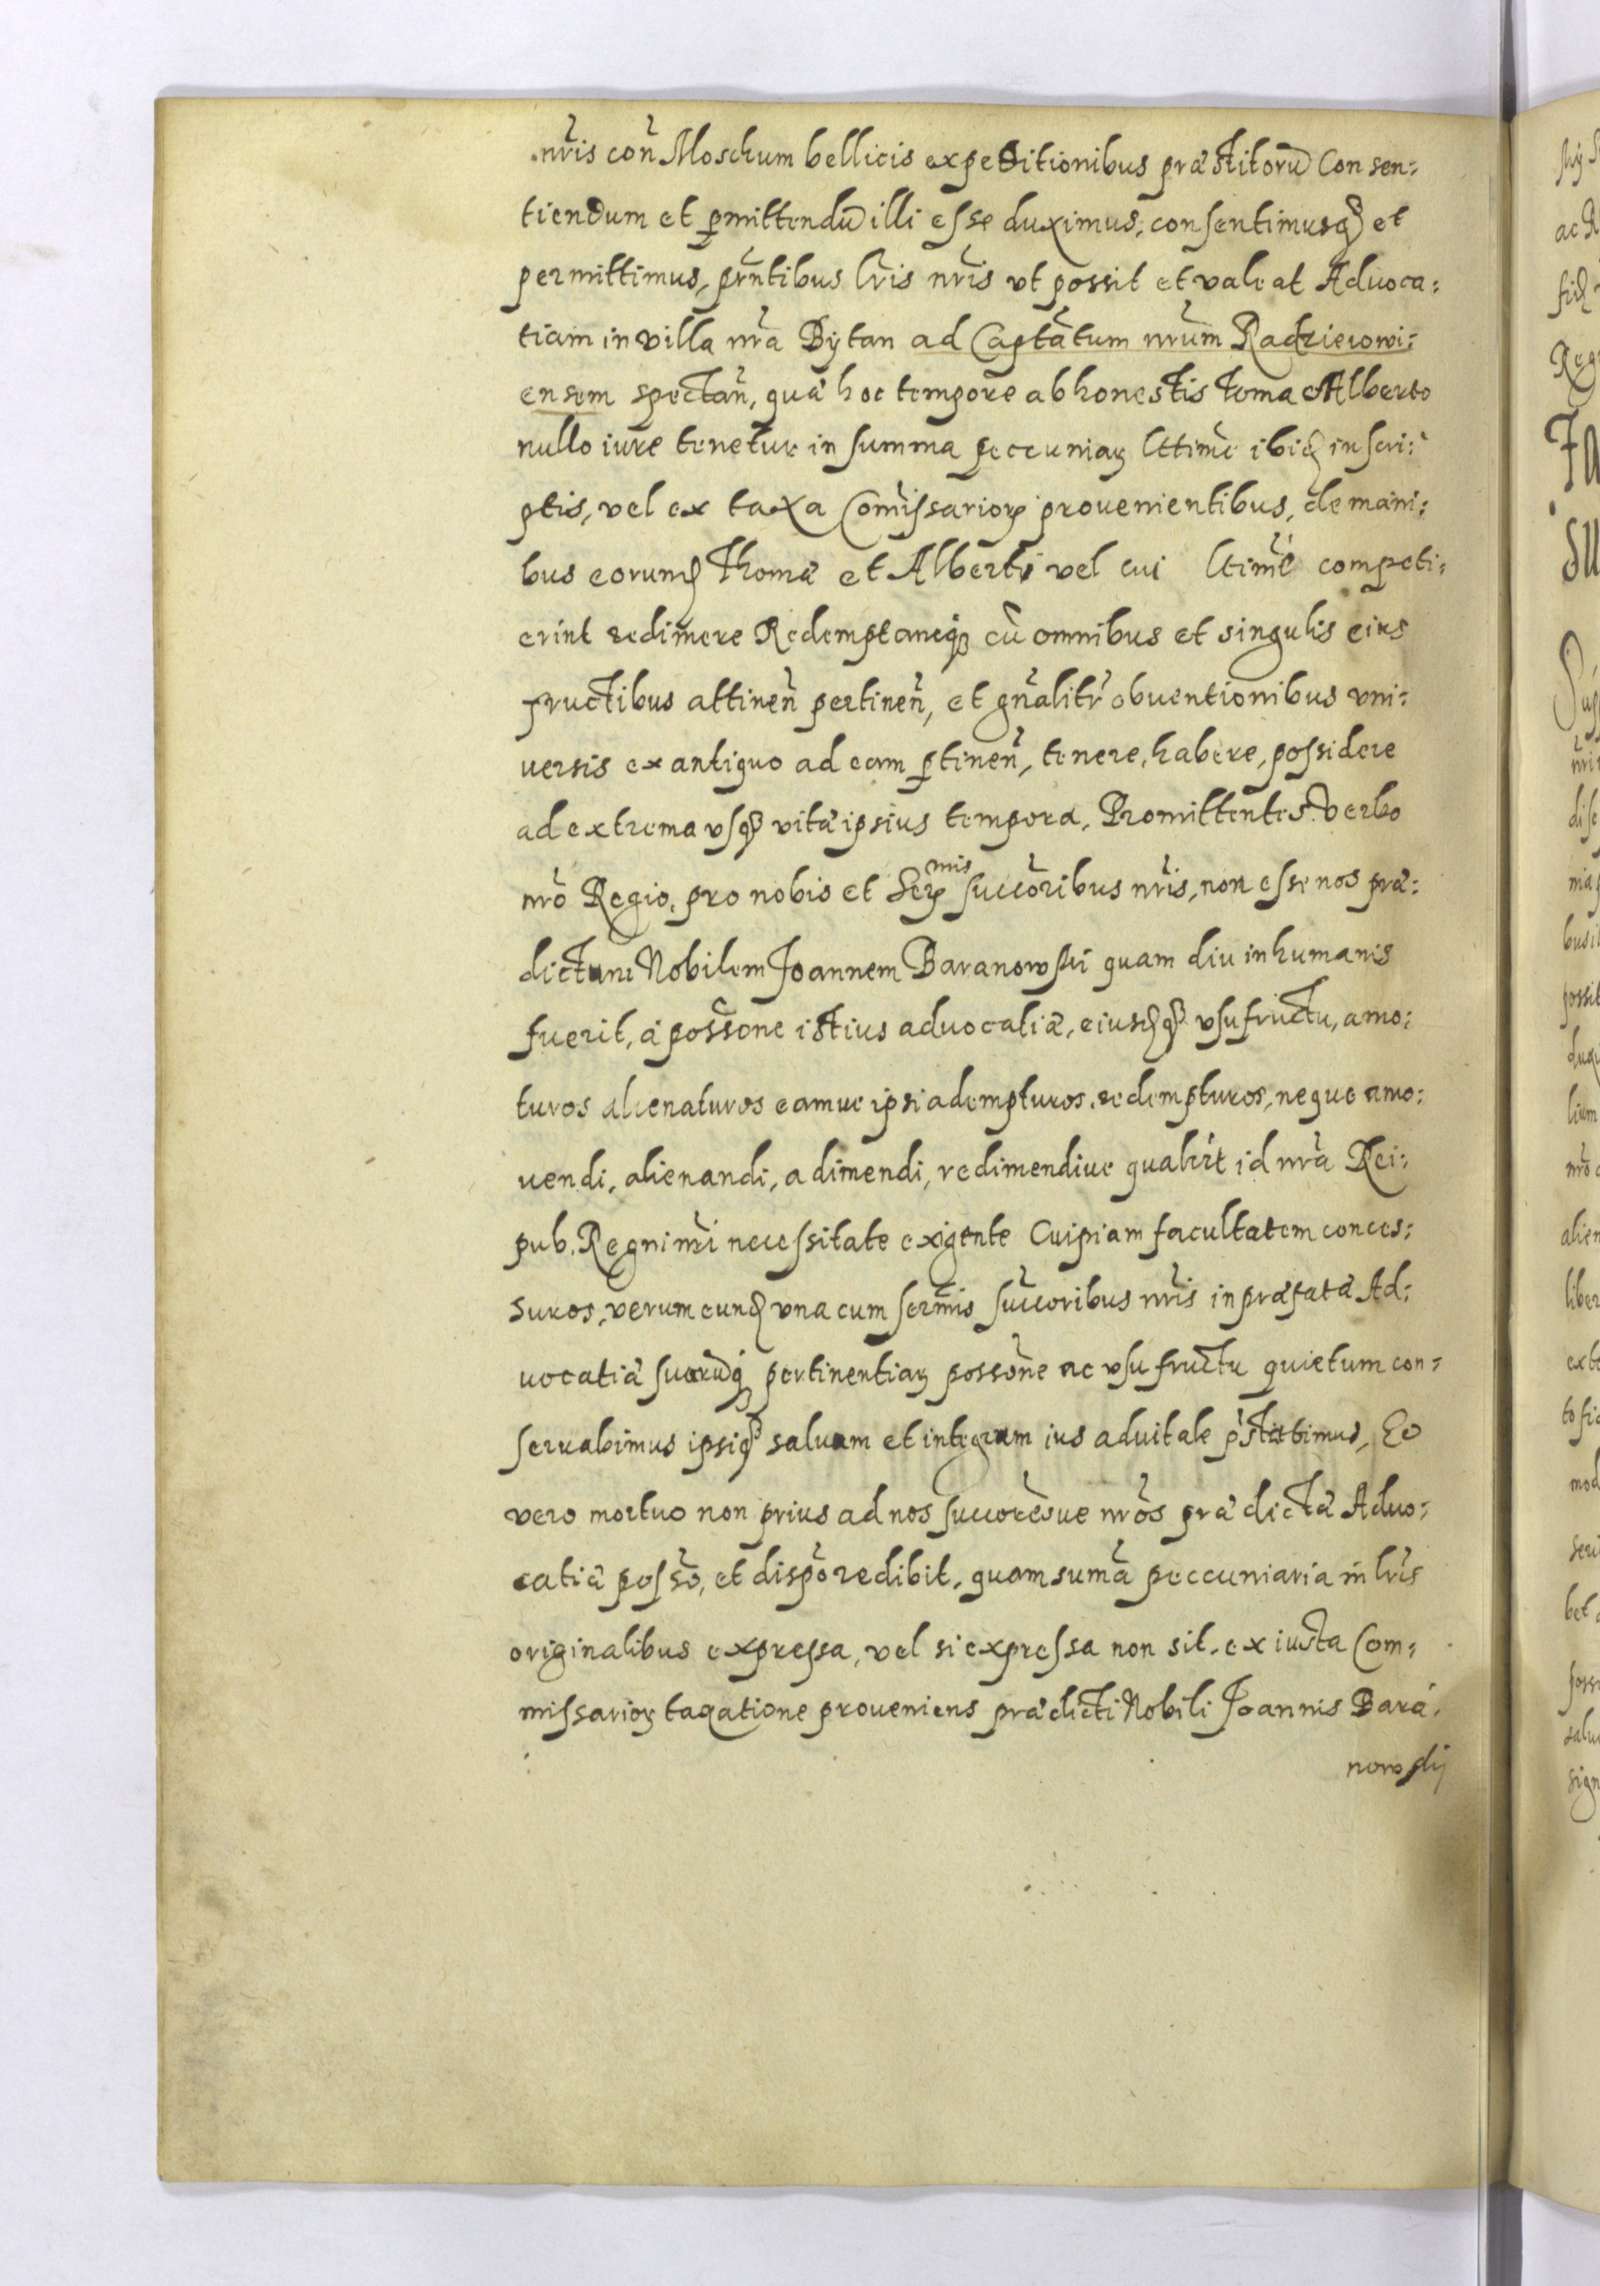 nr̃is con̄ Moschum bellicis expeditionibus præstitorū Consen:
tiendum et ꝑmittendū illi esse duximus, consentimusqꝫ et
permittimus, prñtibus lr̃is nr̃is vt possit et valeat Aduoca:
tiam in villa nr̃a Bytan ad Captãtum nr̃um Radzieiowi:
ensem spectan̄, quæ hoc tempore ab honestis Toma et Alberto
nullo iure tenetur in summa peccuniaꝝ lttime ibiđ inscri:
ptis, vel ex taxa Com̄issarioꝝ prouenientibus, de mani:
bus eorunđ Thomæ et Alberti vel cui ltime competi:
erint redimere Redemptamqꝫ cū omnibus et singulis eius
fructibus attinen̄ pertinen̄, et gñalitr̃ obuentionibus vni:
uersis ex antiquo ad eam ꝑtinen̄, tenere, habere, possidere
ad extrema vsqꝫ vitæ ipsius tempora. Promittentes verbo
nr̃o Regio, pro nobis et Ser^mis succõribus nr̃is, non esse nos præ:
dictum Nobilem Joannem Baranowski quam diu in humanis
fuerit, à possone istius aduocatiæ, eiusđqꝫ vsufructu, amo:
turos alienaturos eamue ipsi adempturos, redempturos, neque amo:
uendi, alienandi, adimendi, redimendiue qualr̃t id nr̃a Rei:
pub. Regni nr̃i necessitate exigente Cuipiam facultatem conces:
suros, verum eunđ vna cum serm̄is succoribus nr̃is in præfata Ad:
uocatiæ suarūqꝫ pertinentiaꝝ possone ac vsufructu quietum con:
seruabimus ipsiqꝫ saluum et integrum ius aduitale p̃stabimus, Eo
vero mortuo non prius ad nos succoresue nr̃os prædictæ Aduo:
catiæ posso, et dispo redibit, quam suma peccuniaria in lr̃is
originalibus expressa, vel si expressa non sit, ex iusta Com:
missarioꝝ taxatione proueniens prædicti Nobili Joannis Bara:
nowskij